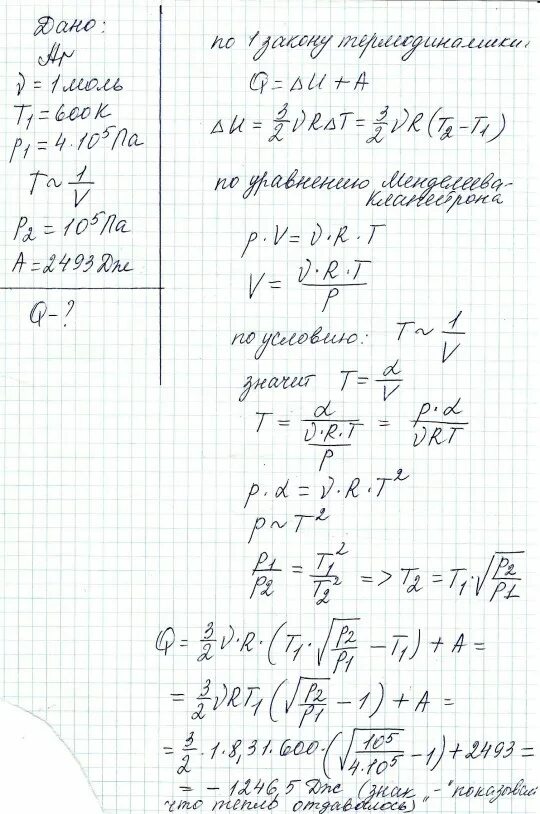 Дано:
Ar
ν = 1 моль
T₁ = 600K
p₁ = 4·10⁵ Па
T ~ 1/V
P₂ = 10⁵ Па
A = 2493 Дж
Q - ?
по 1 закону термодинамики:
Q = ΔU + A
ΔU = 3/2 νRΔT = 3/2 νR(T₂ - T₁)
по уравнению Менделеева-
Клапейрона
p · V = ν · R · T
V = ν · R · T / P
по условию: T ~ 1/V
значит T = α/V
T = α / (ν · R · T / P) = p · α / νRT
p · α = ν · R · T²
p ~ T²
P₁/P₂ = T₁²/T₂² => T₂ = T₁ · √(P₂/P₁)
Q = 3/2 ν · R · (T₁ · √(P₂/P₁) - T₁) + A =
= 3/2 νRT₁ (√(P₂/P₁) - 1) + A =
= 3/2 · 1 · 8,31 · 600 · (√(10⁵/4·10⁵) - 1) + 2493 =
= - 1246,5 Дж (знак „-" показывал
что тепло отдавалось)